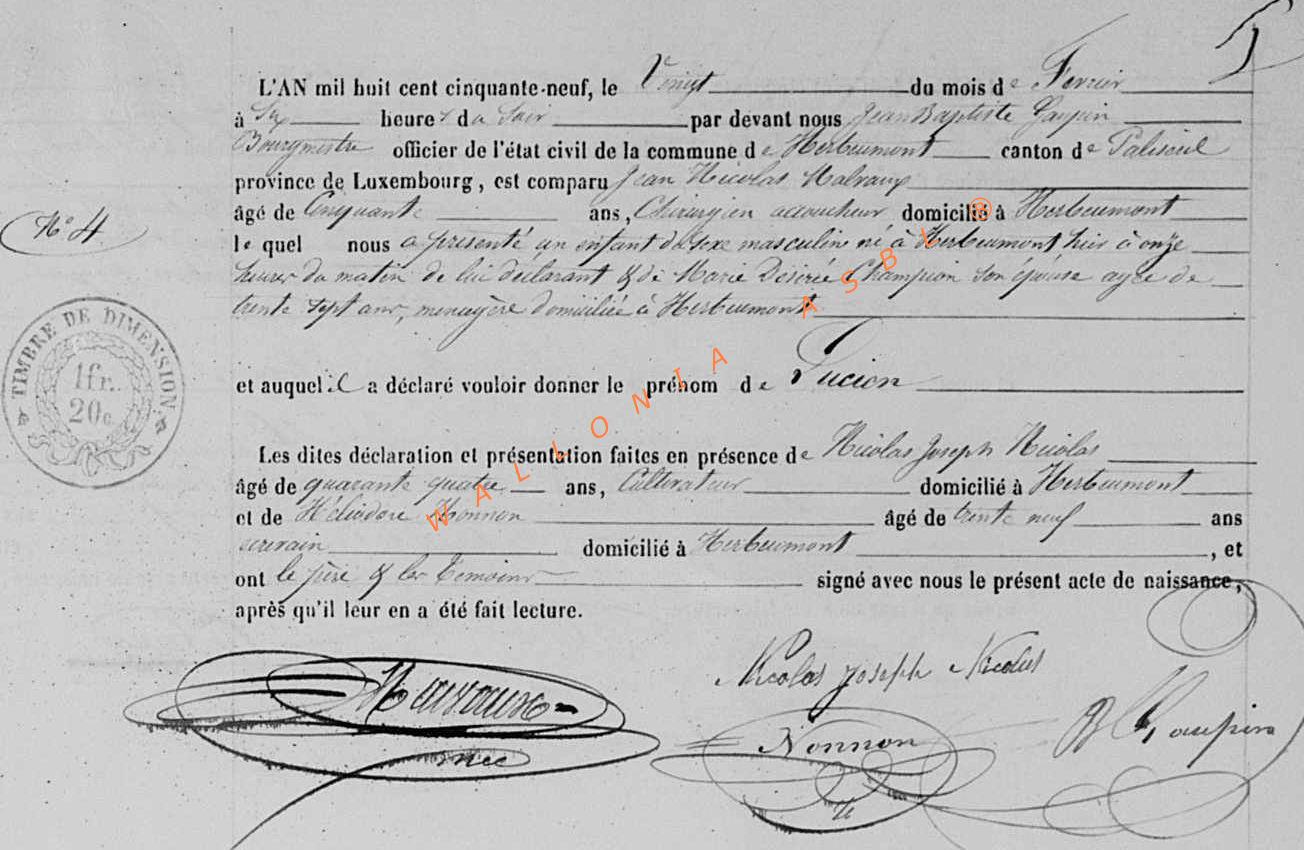 5
L'AN mil huit cent cinquante-neuf, le Vingt du mois de Fevrier
à Six heures du Soir par devant nous Jean Baptiste Gaupin
Bourgmestre officier de l'état civil de la commune de Herbeumont canton de Paliseul
province de Luxembourg, est comparu Jean Nicolas Malvaux
âgé de Cinquante ans, Chirurgien accoucheur domicilié à Herbeumont
N° 4
le quel nous a présenté un enfant du sexe masculin né à Herbeumont hier à onze
heures du matin de lui déclarant & de Marie Desirée Champion son épouse agée de
trente sept ans, menagère domiciliée à Herbeumont
TIMBRE DE DIMENSION
1fr.
20c
et auquel il a déclaré vouloir donner le prénom de Lucien
Les dites déclaration et présentation faites en présence de Nicolas Joseph Nicolas
âgé de quarante quatre ans, Cultivateur domicilié à Herbeumont
et de Héliodore Nonnon âgé de trente neuf ans
écrivain domicilié à Herbeumont, et
ont le père & les temoins signé avec nous le présent acte de naissance,
après qu'il leur en a été fait lecture.
Malvaux
Nicolas Joseph Nicolas
Nonnon
Gaupin
WALLONIA ASBL ®